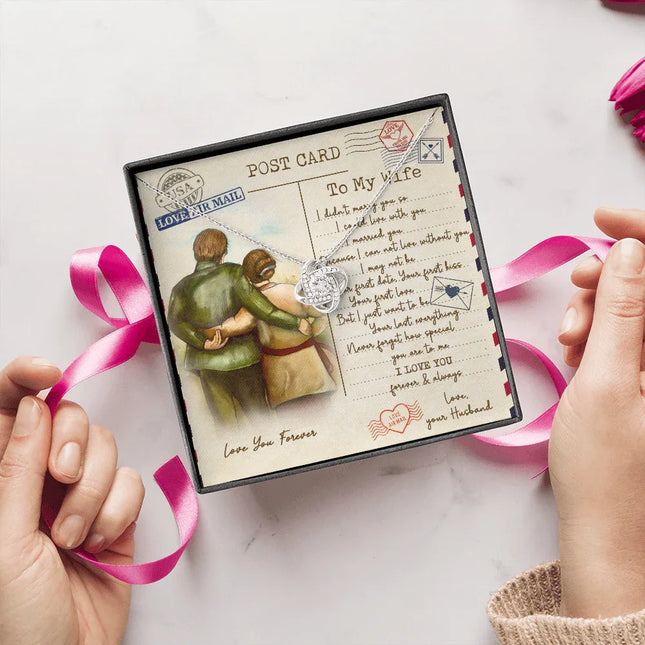 POST CARD
USA
LOVE AIR MAIL
LOVE
To My Wife
I didn't marry you so
I could live with you
I married you
because I can not live without you
I may not be
first date. Your first kiss
Your first love.
But I just want to be
Your last everything
Never forget how special
you are to me
I LOVE YOU
forever & always
love,
your Husband
LOVE
AIR MAIL
Love You Forever